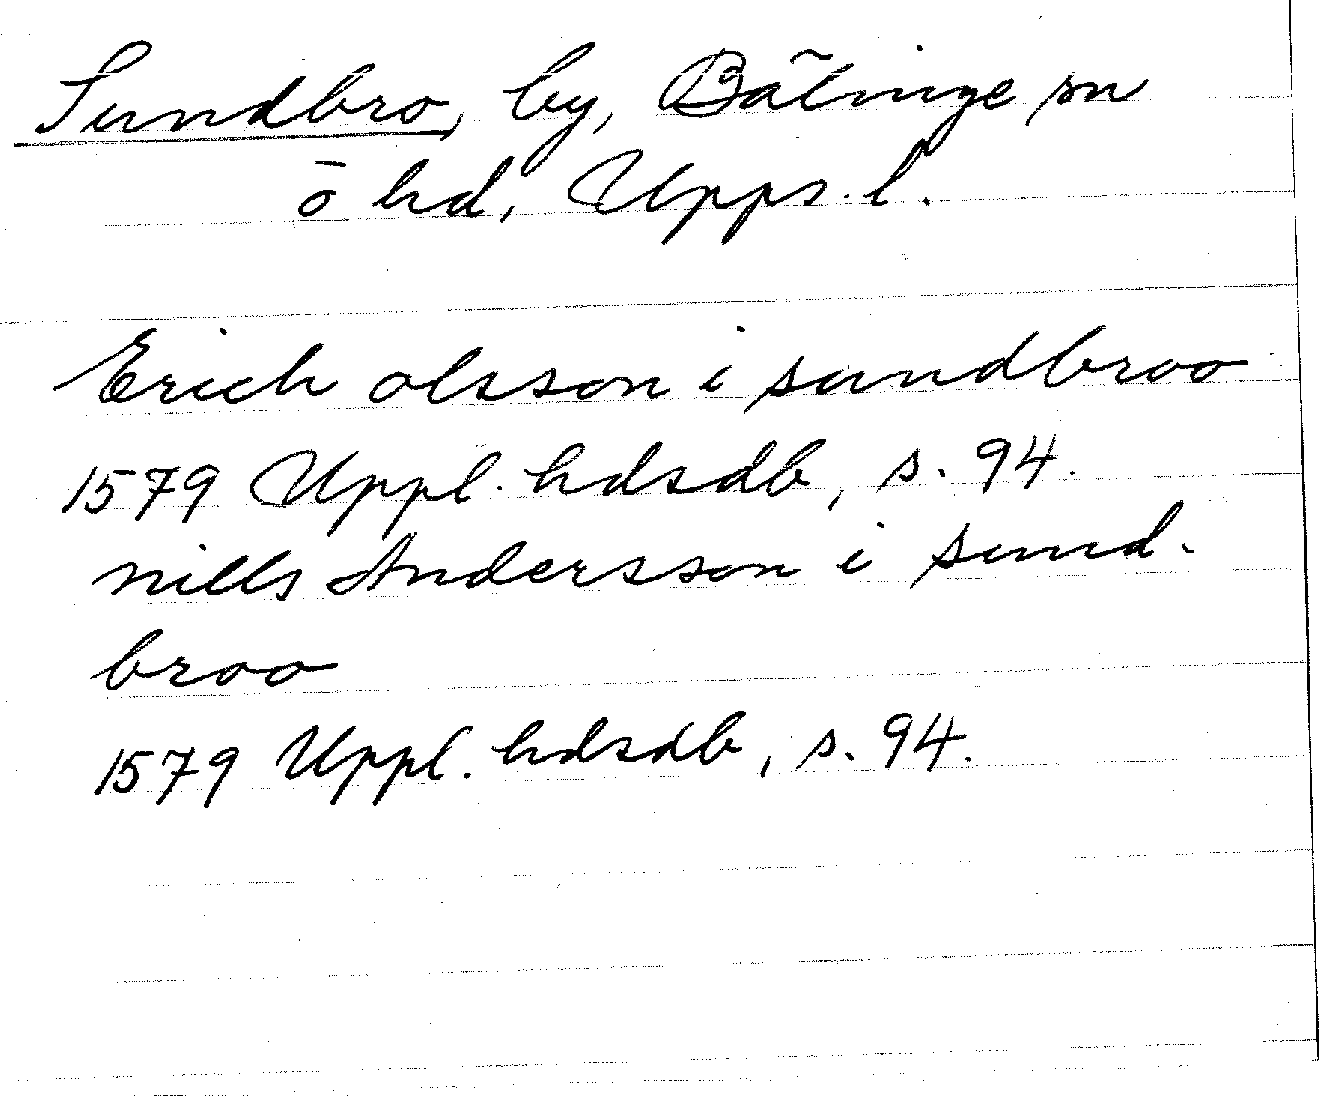 Sundbro, by, Bälinge sn
o hd, Upps. l.
Erich olsson i sundbroo
1579 Uppl. hdsdb, s. 94.
nills Andersson i sund-
broo
1579 Uppl. hdsdb, s. 94.